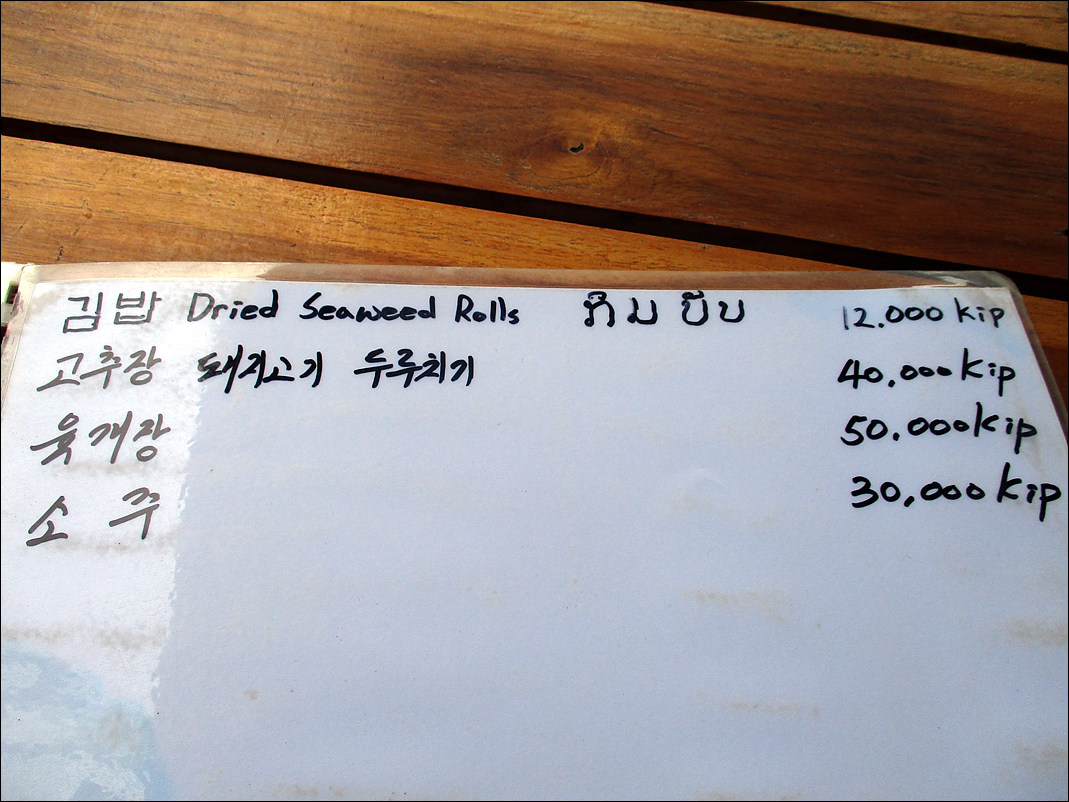 김밥 Dried Seaweed Rolls ກິມ ບັບ 12.000 kip
고추장 돼지고기 두루치기 40,000 kip
육개장 50.000 kip
소주 30,000 kip